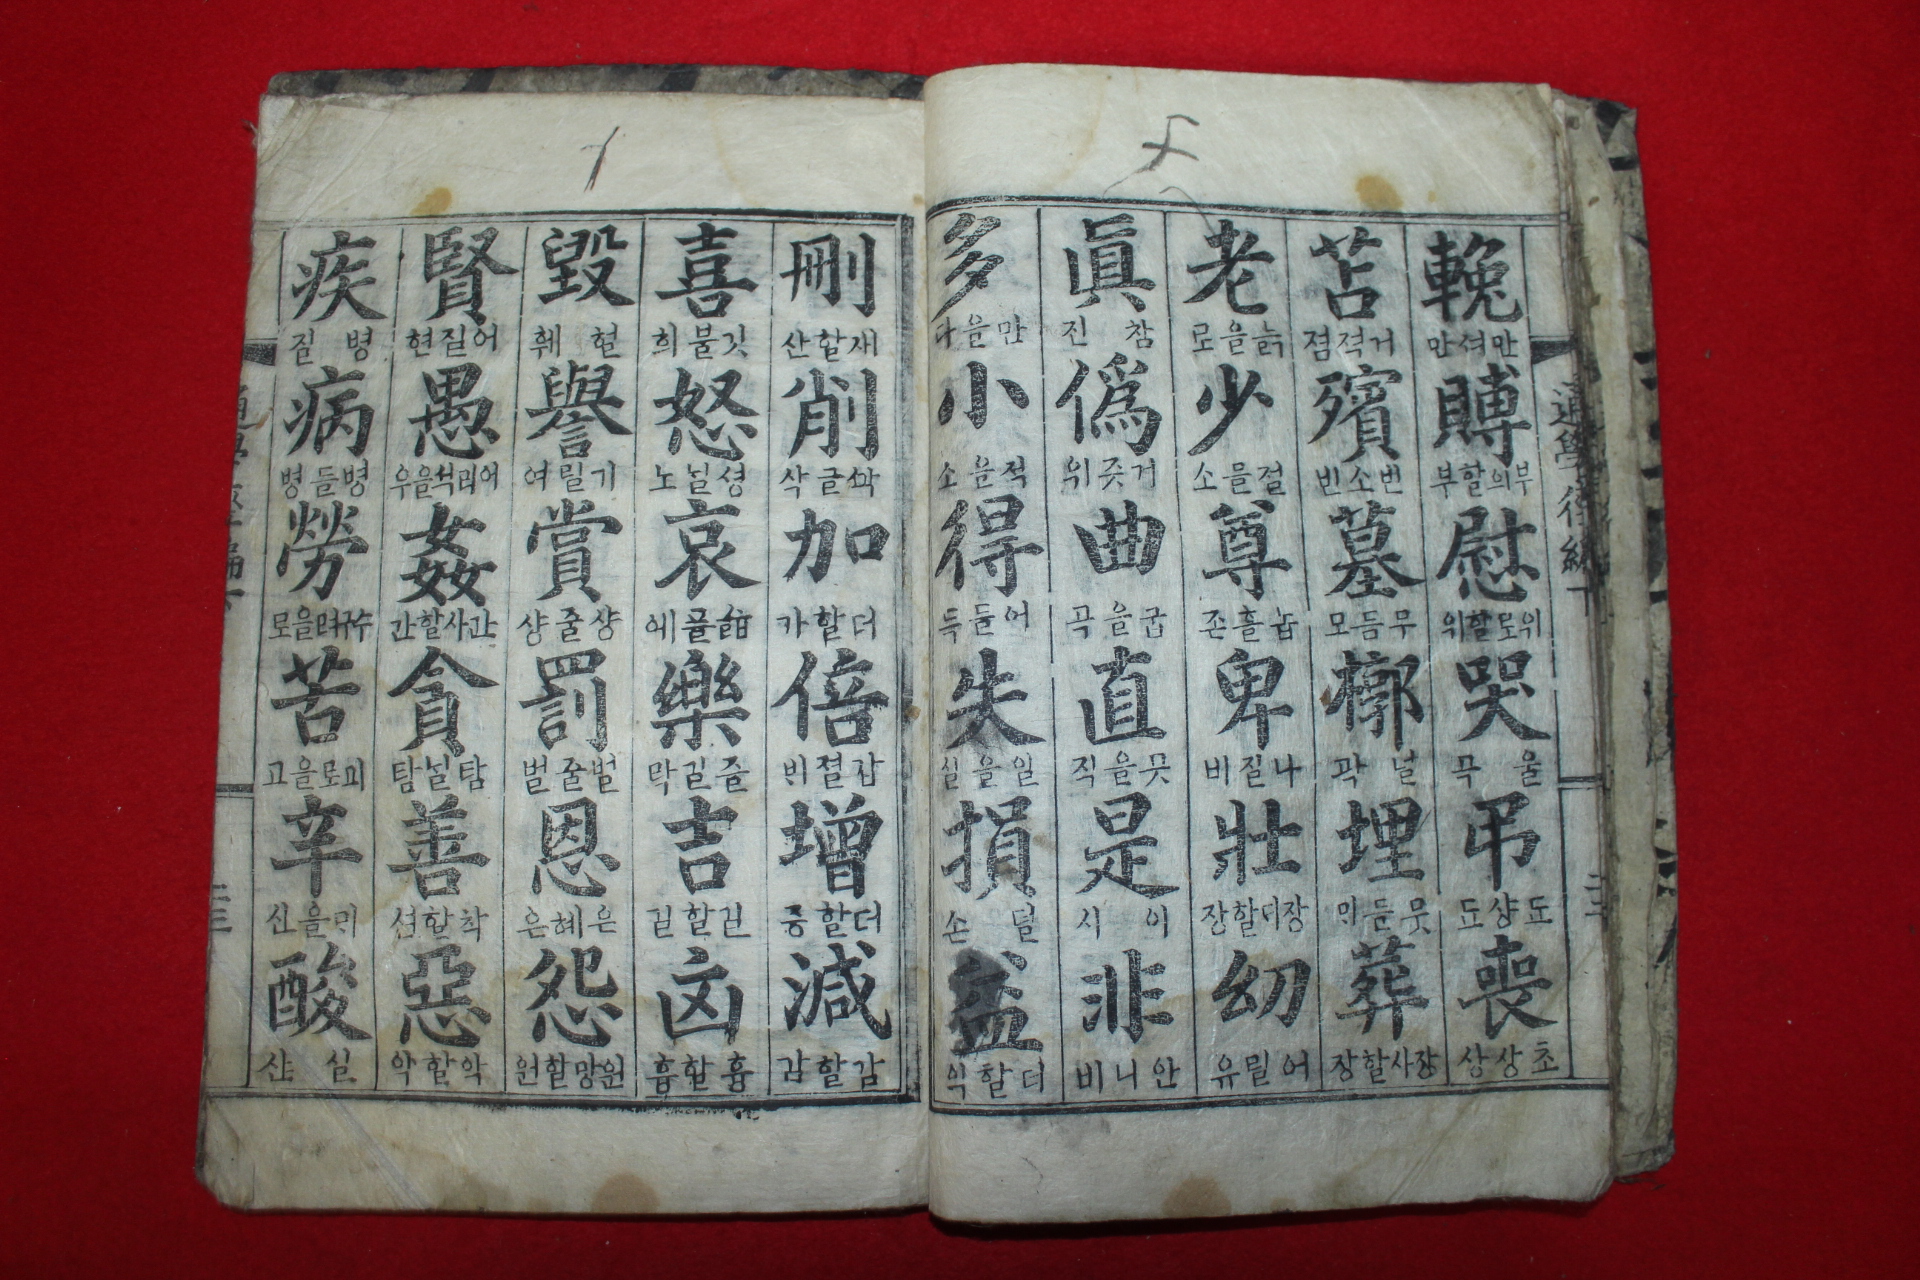 通學徑編下 二三
輓 만셔만 賻 부의할부 慰 위로할위 哭 울 弔 됴샹됴 喪 초상상
苫 거적졈 殯 빈소빈 墓 무듬모 槨 널곽 埋 葬 장사할장
老 늙을로 少 졀믈소 尊 놉흘존 卑 나질비 壯 장디할장 幼 어릴유
眞 참진 僞 거즛위 曲 굽을곡 直 곳을직 是 이시 非 안니비
多 만을다 小 적을소 得 어들득 失 일을실 損 덜손 益 더할익
刪 재할산 削 싹글삭 加 더할가 倍 갑졀비 增 더할증 減 감할감
喜 깃불희 怒 셩닐노 哀 樂 즐길락 吉 길할길 凶 흉할흉
毁 헐훼 譽 기릴여 賞 샹줄샹 罰 벌줄벌 恩 은혜은 怨 원망할원
賢 어질현 愚 어리석을우 姦 간사할간 貪 탐닐탐 善 착할션 惡 악할악
疾 병질 病 병들병 勞 苦 괴로을고 辛 신 酸 실산